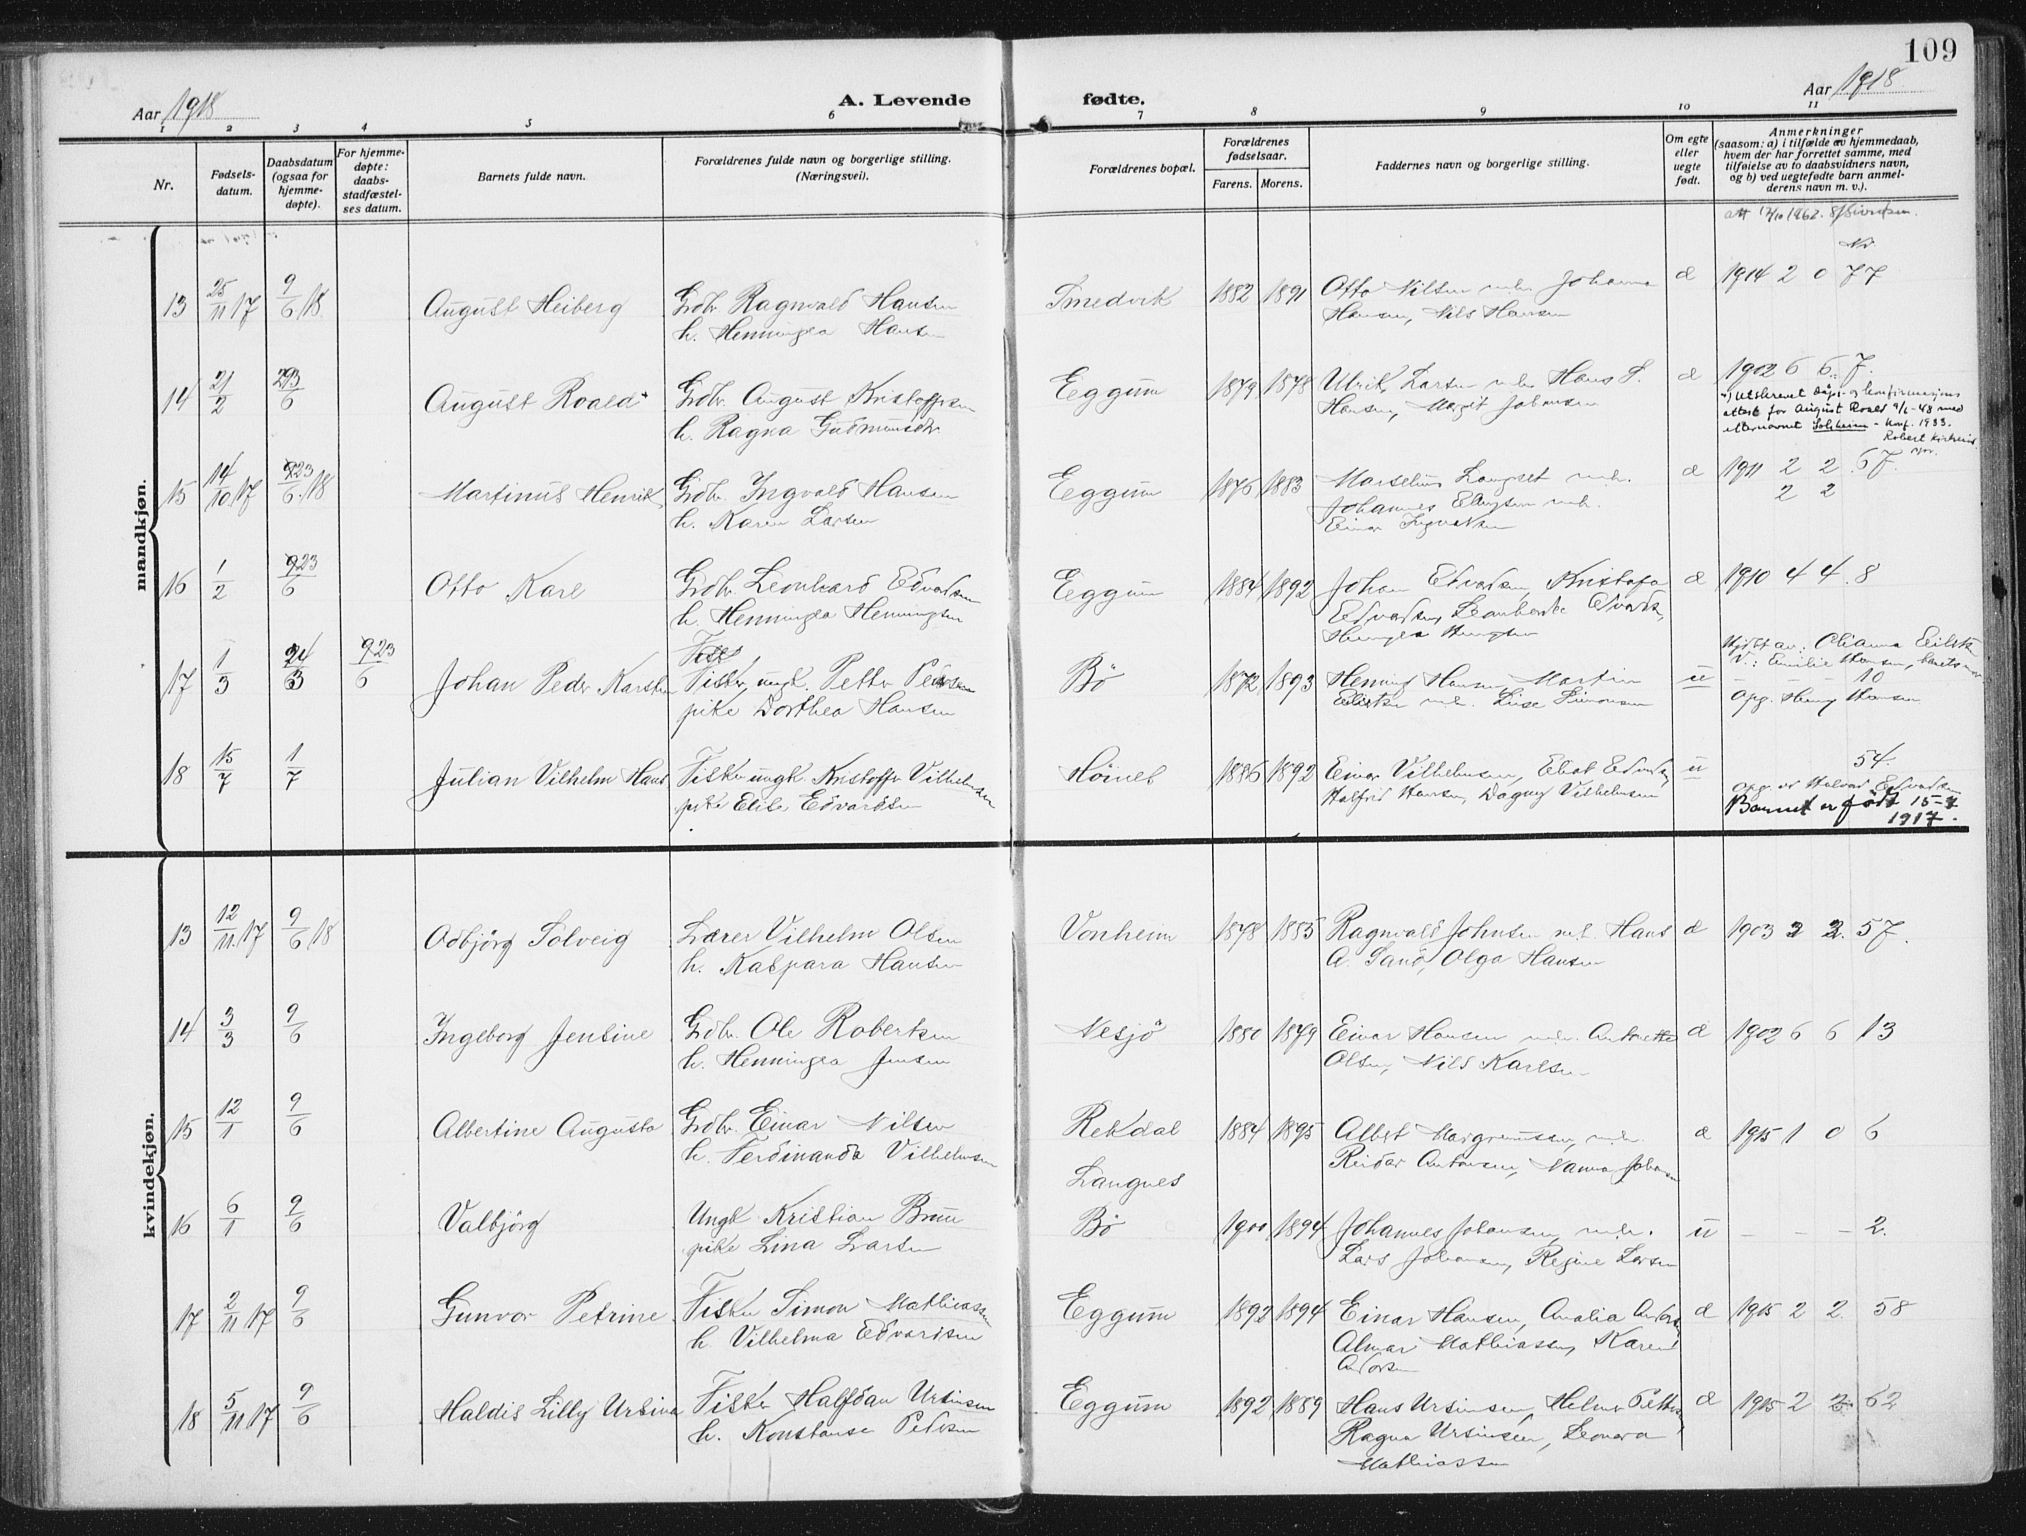 109
Aar 1918
A. Levende fødte.
Aar 1918
1 2 3 4 5 6 7 8 9 10 11
Nr.
Fødsels-
datum.
Daabsdatum
(ogsaa for
hjemme-
døpte).
For hjemme-
døpte:
daabs-
stadfæstel-
ses datum.
Barnets fulde navn.
Forældrenes fulde navn og borgerlige stilling.
(Næringsvei).
Forældrenes bopæl.
Forældrenes
fødselsaar.
Farens. Morens.
Faddernes navn og borgerlig stilling.
Om egte
eller
uegte
født.
Anmerkninger
(saasom: a) i tilfælde av hjemmedaab,
hvem der har forrettet samme, med
tilføielse av to daabsvidners navn,
og b) ved uegtefødte barn anmel-
derens navn m. v.).
att 17/10 1962.
mandkjøn.
Nr.
13 25/11 17 9/6 18 August Heiberg Grdbr. Ragnvald Hansen Smedvik 1882 1891 Otto Nilsen m.h. Johanna æ 1914 2 0 77
h. Henningea Hansen Hansen, Nils Hansen
14 21/2 23/6 August Roald Grdbr. August Kristoffersen Eggum 1879 1878 Ulrik Larsen m.h. Hans S. æ 1902 6 6. 7.
h. Ragna Gudmundsdtr. Hansen, Margit Johansen
Utskrevet dåps- og konfirmasjons
attest for August Roald 9/1-48 med
etternavnet Solheim - konf. 1933.
15 14/10. 17 23/6. 18 Martinus Henrik Grdbr. Ingvald Hansen Eggum 1876 1883 Marselius Langset m.h. æ 1911 2 2. 67.
h. Karen Larsen Johannes m.h. 2 2
Einar Ingvaldsen
16 1/2 23/6 Otto Karl Grdbr. Leonhard Edvardsen Eggum 1884 1892 Johan Edvardsen, Kristofa æ 1910 4 4. 8
h. Henningea Henningsen Edvardsen,
17 1/3 24/3 23/6 Johan Peder Karsten Fisker, ungk. Petter Pedersen Bö 1872 1893 Hening Hansen, Martin u - - - 10
pike Dorthea Hansen m.h. Lise Simonsen
V.: Emilie Hansen,
opg. Hansen
18 15/7 1/7 Julian Vilhelm Hans Fisker ungk. Kristoffer Vilhelmsen 1886 1892 Einar Vilhelmsen, u 54.
pike Edvardsen Halfrid Hansen, Dagny Vilhelmsen
opg. av Halvard Edvardsen
Barnet er født 15-7
1917.
kvindekjøn.
13 12/11. 17 9/6 18 Odbjörg Solveig Lærer Vilhelm Olsen Vonheim 1878 1885 Ragnvald Johnsen m.h. Hans æ 1903 2 2. 57.
h. Kaspara Hansen A. Sand, Olga Hansen
14 3/3 9/6 Ingeborg Jensine Grdbr. Ole Robertsen Nesjö 1880 1879 Einar Hansen m.h. Antonette æ 1902 6 6 13
h. Henningea Jensen Olsen, Nils Karlsen
15 12/1 9/6 Albertine Augusta Grdbr. Einar Nilsen Rekdal 1884 1895 Albert m.h. æ 1915 1 0 6
h. Ferdinanda Vilhelmsen Reidar Antonsen, Nanna Johansen
Langnes
16 6/1 9/6 Valbjörg Ungk Kristian Brun Bö 1900 1894 Johannes Johansen, m.h. u - - - 2.
pike Lina Larsen Lars Johansen, Regine Larsen
17 2/11 17 9/6 Gunvor Petrine Fisker Simon Mathiassen Eggum 1892 1894 Einar Hansen, Amalia æ 1915 2 2. 58
h. Vilhelma Edvardsen Almar Mathiassen, Karen
18 5/11 17 9/6 Haldis Lilly Ursina Fisker Halfdan Ursinsen Eggum 1892 1889 Hans Ursinsen, Helmer æ 1915 2 2. 62
h. Konstanse Pedersen Ragna Ursinsen, Leonora
Mathiassen